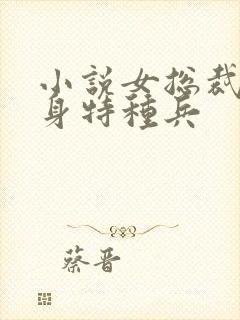 小説女总裁
身特種兵
蔡晋